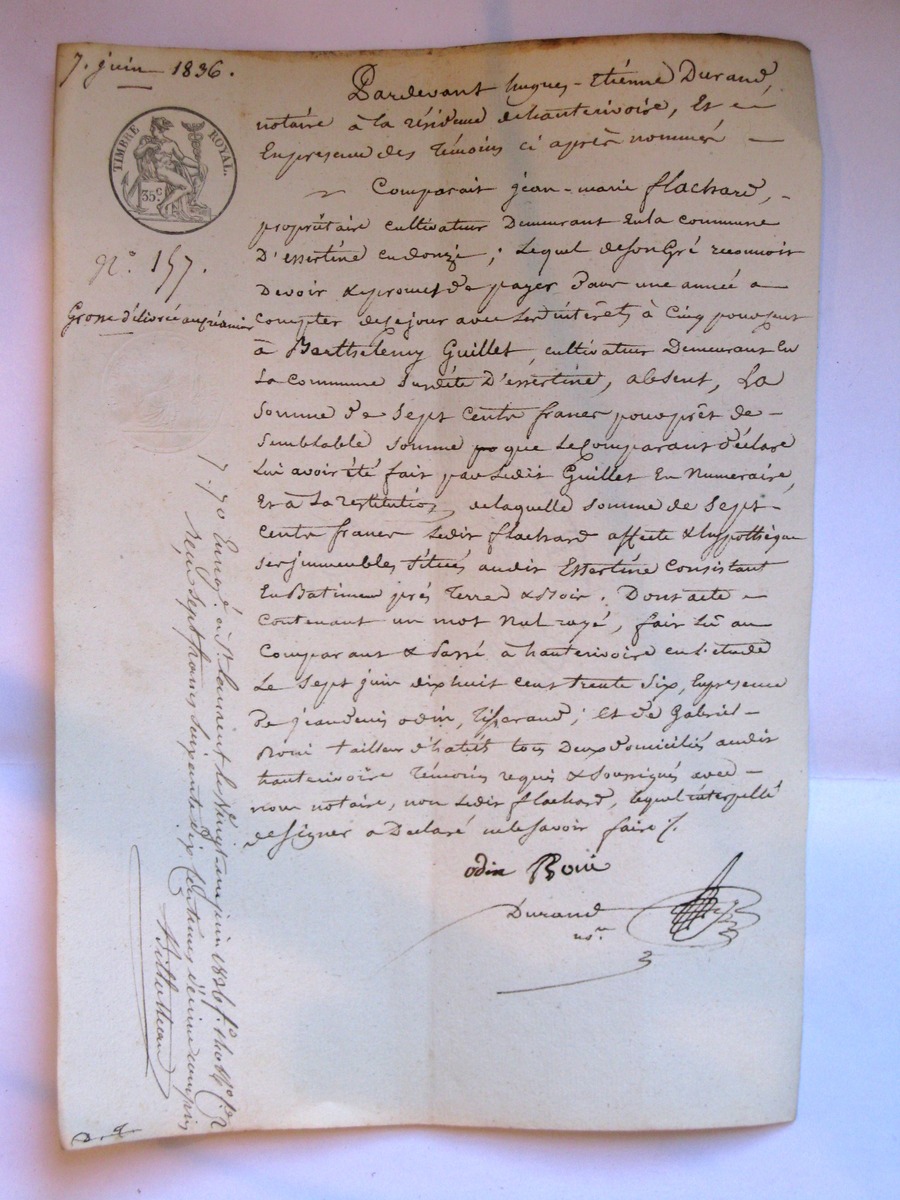 7. juin 1836.
TIMBRE ROYAL.
35 c.
N.º 157.
Grosse délivrée au créancier
Pardevant hugues-Etiénne Durand,
notaire à la résidence dehauterivoire, Et en
Enpresence des Témoins ci après nommés —
Comparait jean-marie flachard, -
propriétaire cultivateur Demeurant Enla commune
D'essertine endonzi ; Lequel desongré reconnoit
Devoir & promet de payer Dans une année a
compter decejour avec Lesd intérets à Cinq pourcent
à Barthélemy Guillet, cultivateur Demeurant En
La Commune Susdite D'essertine, absent, La
Somme De Sept Cents francs pour prêt de -
Semblable somme po que Lecomparant déclare
lui avoir été fait par Ledit Guillet En Numeraire,
Et à La restitution, delaquelle somme de Sept-
Cents francs Ledit flachard affecte & hypothèque
Ses immeubles Situés audit Essertine Consistant
En Batimens prés Terres & Bois. Dont acte -
Contenant un mot Nul rayé, fait Lu au
Comparant & Passé à hauterivoire en l'étude
Le Sept juin dix huit cent trente Six, Enpresence
De jeandenis odin, Tisserand ; Et De Gabriel-
Roni tailleur d'habits tous Deux domiciliés audit
hauterivoire Témoins requis & Soussignés avec -
nous notaire, non Ledit flachard, Lequel interpellé
designer a Declaré nelesavoir faire ./.
odin Roni
Durand
no.re
Enreg.é à S.t Laurent le Vingt un juin 1836 f.o
Reçu sept francs soixante dix centimes décime compris